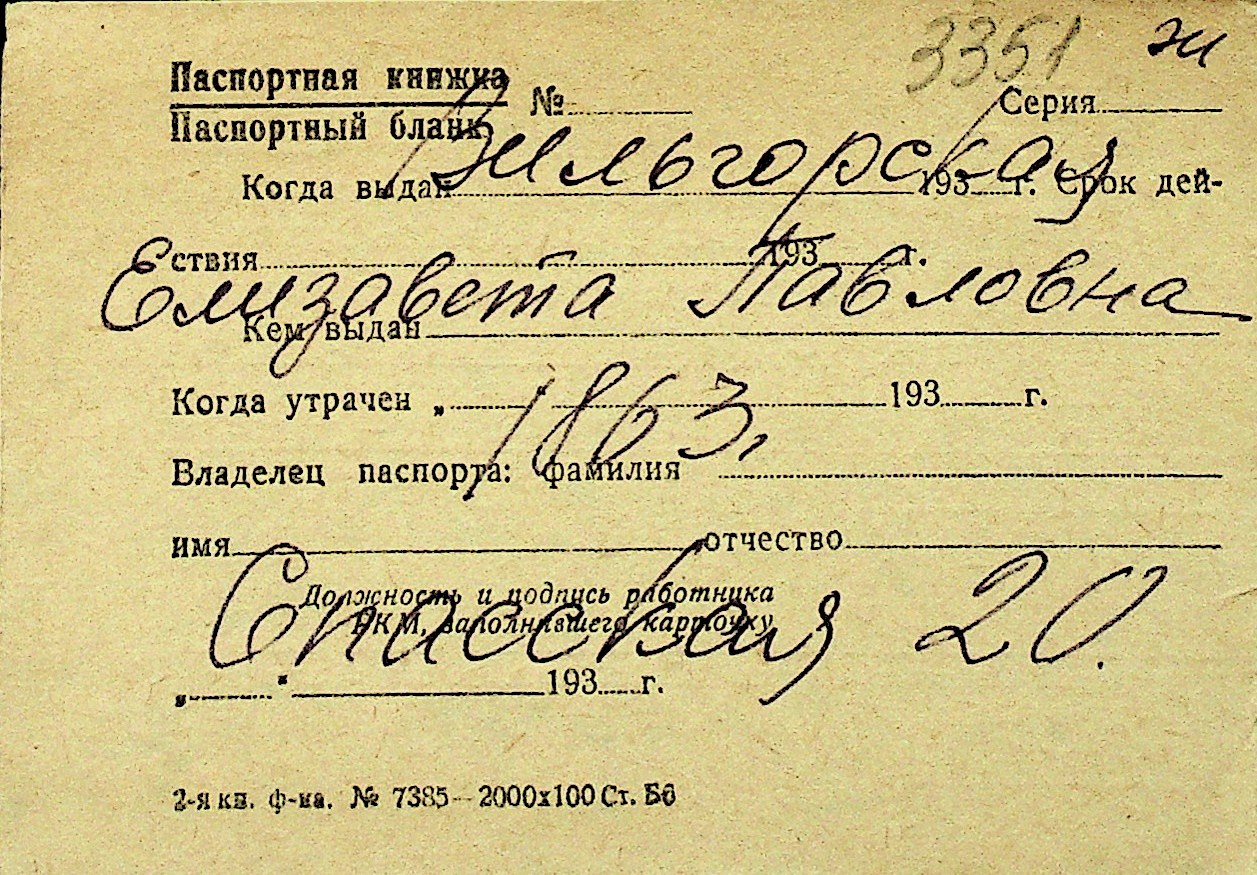 3351 жи
Паспортная книжка
Паспортный бланк № Серия
Вильгорская
Когда выдан 193 г. Срок дей-
ствия 193 г.
Елизавета Павловна
Кем выдан
Когда утрачен „ “ 193 г.
1863,
Владелец паспорта: фамилия
имя отчество
Должность и подпись работника
РКМ, заполнившего карточку
Спасская 20.
„ “ 193 г.
2-я кн. ф-ка. № 7385—2000x100 Ст. Бб